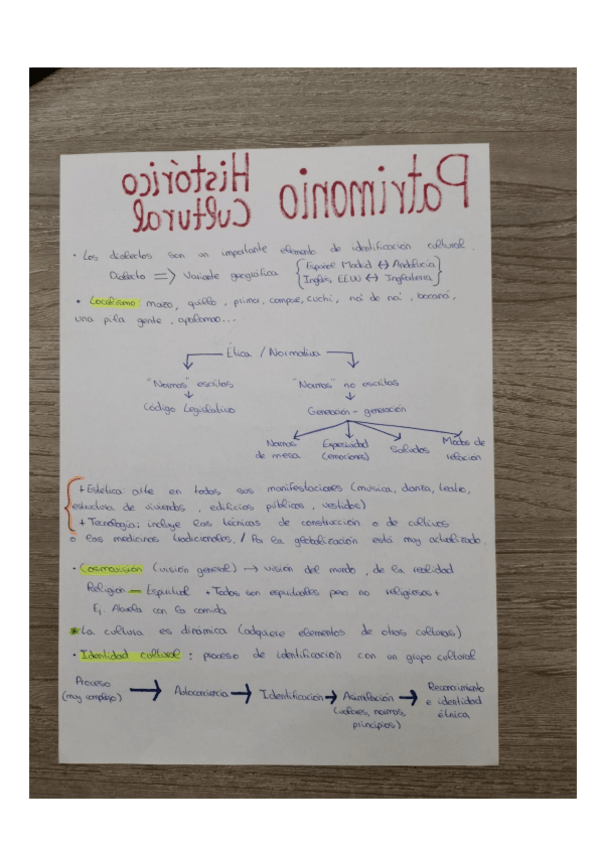 Patrimonio Histórico Cultural
• Los dialectos son un importante elemento de identificación cultural.
Dialecto => Variante geográfica { Español Madrid <-> Andalucía
Inglés EEUU <-> Inglaterra }
• Localismo: mazo, quillo, prima, compae, cuchi, no'i de na', bacaná,
una pila gente, apalomao...
Ética / Normativa
"Normas" escritas "Normas" no escritas
Código Legislativo Generación - generación
Normas de mesa (emociones) Saludos Modos de relación
+ Estética: arte en todas sus manifestaciones (música, danza, teatro,
estructura de viviendas, edificios públicos, vestidos)
+ Tecnología: incluye las técnicas de construcción o de cultivos
o las medicinas tradicionales. / Por la globalización está muy actualizado.
• Cosmovisión (visión general) -> visión del mundo, de la realidad
Religión — Espiritual + Todos son espirituales pero no religiosos +
Ej. Abuela con la comida
• La cultura es dinámica (adquiere elementos de otras culturas)
• Identidad cultural: proceso de identificación con un grupo cultural
Proceso (muy complejo) -> Autoconciencia -> Identificación -> Asimilación (valores, normas, principios) -> Reconocimiento e identidad étnica